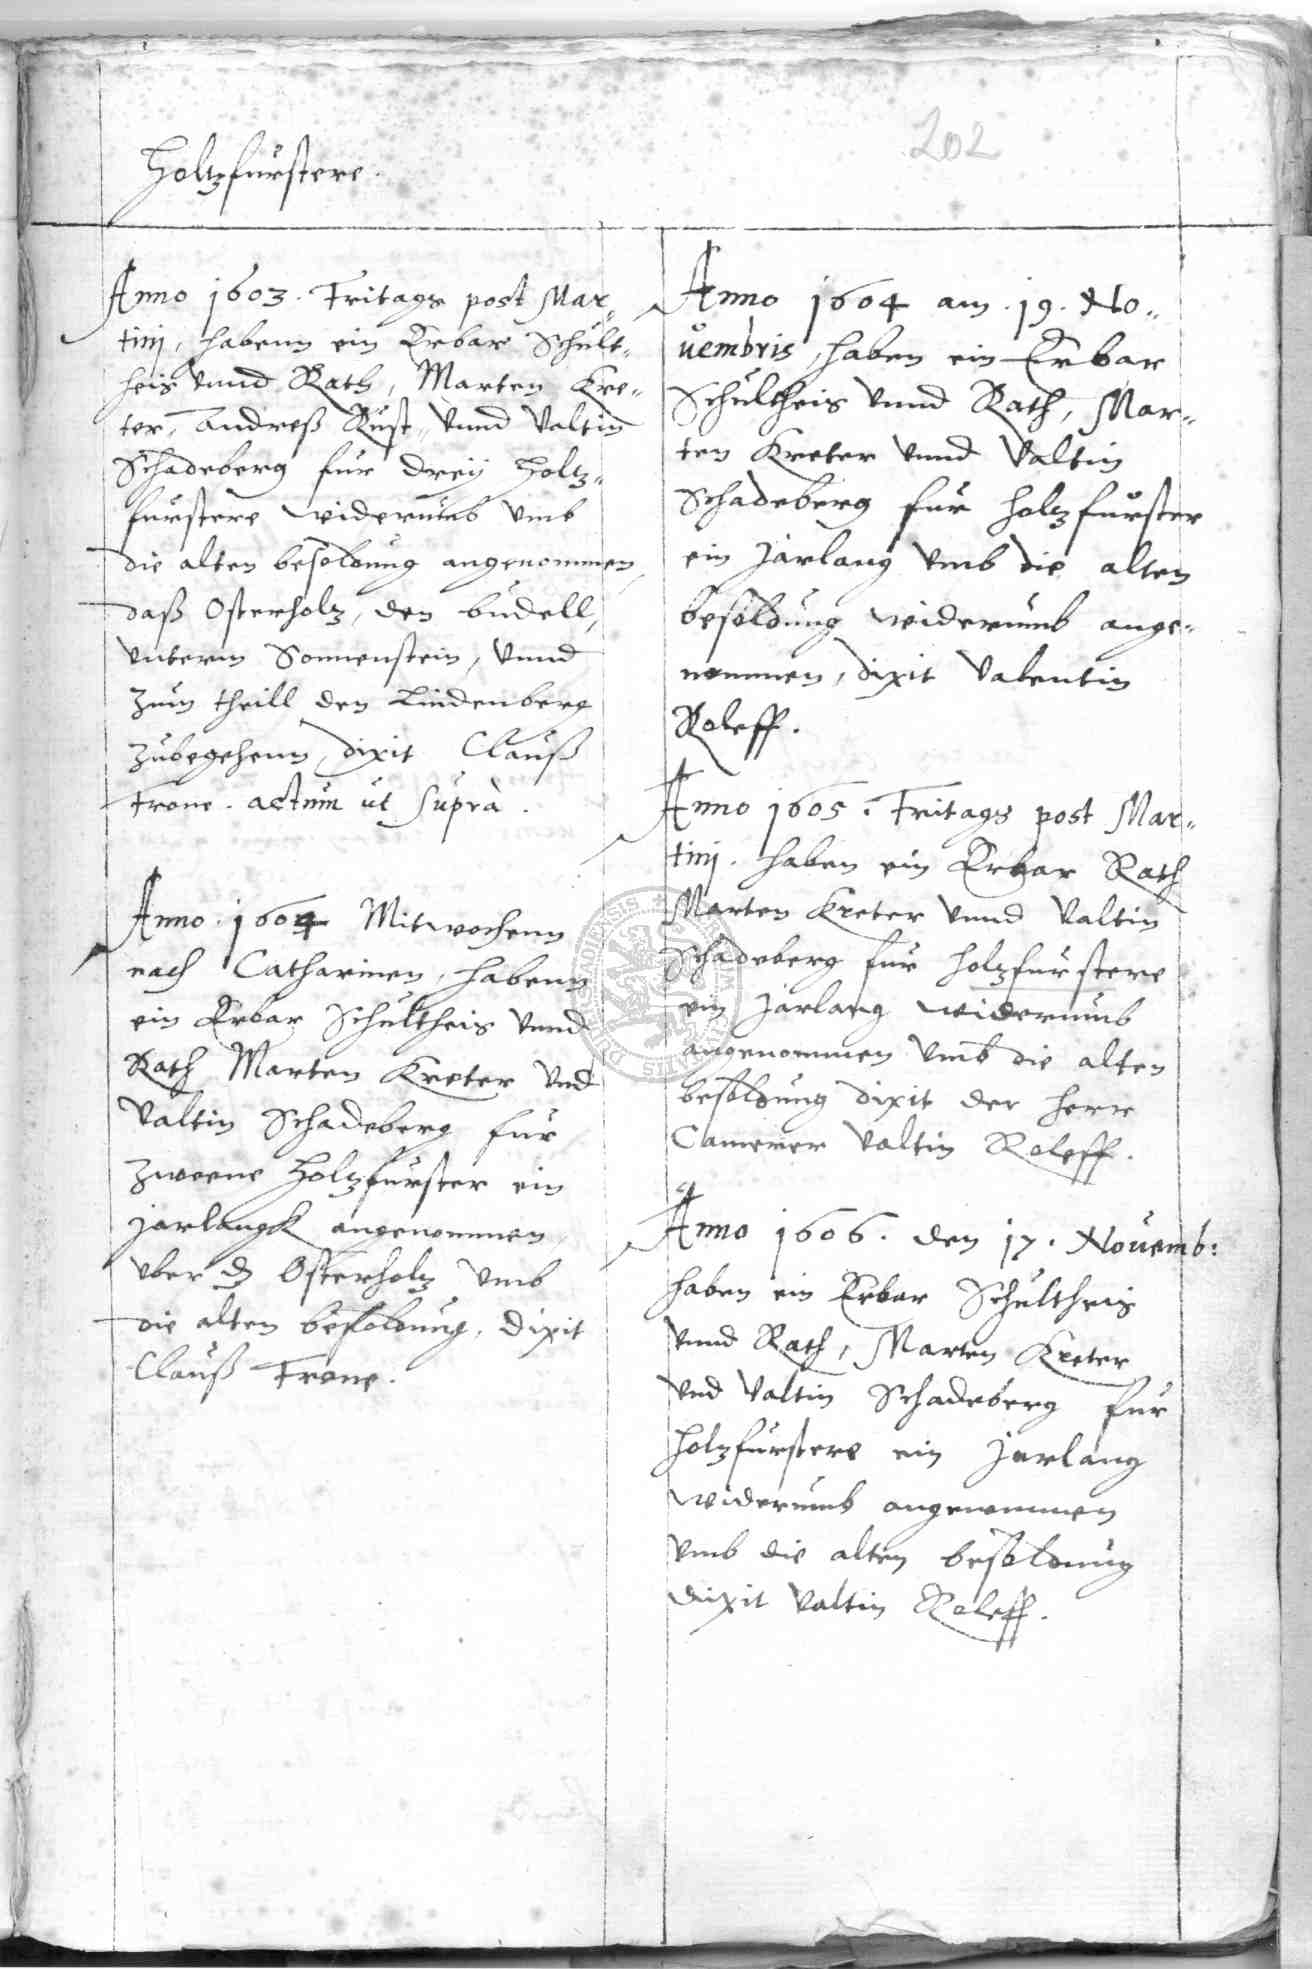 202
Holtzfurstere.
Anno 1603. Fritags post Mar„
tinj, habenn ein Erbar Schult„
heis vnnd Rath, Marten Kre„
ter, Andreß Rust, vnnd Valtin
Schadeberg fur dreÿ Holtz„
furstere widerumb vmb
die alten besoldung angenommen,
daß Osterholtz, den budell,
vnterm Sonnenstein, vnnd
zum theill den Lindenberg
zubegehenn, dixit Clauß
Frone. actum ut suprà.
Anno 1604 Mitwochenn
nach Catharinen, habenn
ein Erbar Schultheis vnnd
Rath Marten Kreter vnd
Valtin Schadeberg fur
zweene Holtzfurster ein
jarlangk angenommen,
vber dz Osterholtz vmb
die alten besoldung, dixit
Clauß Frone.
Anno 1604 am 19. No„
uembris, haben ein Erbar
Schultheis vnnd Rath, Mar„
ten Kreter vnnd Valtin
Schadeberg fur holtzfurster
ein jarlang vmb die alten
besoldung widerumb ange„
nommen, dixit Valentin
Roleff.
Anno 1605. Fritags post Mar„
tinj. haben ein Erbar Rath
Marten Kreter vnnd Valtin
Schadeberg fur holtzfurstere
ein jarlang widerumb
angenommen vmb die alten
besoldung dixit der herr
Camerer Valtin Roleff.
Anno 1606. den 17. Nouemb:
haben ein Erbar Schultheis
vnnd Rath, Marten Kreter
vnd Valtin Schadeberg fur
holtzfurstere ein jarlang
widerumb angenommen
vmb die alten besoldung
dixit Valtin Roleff.